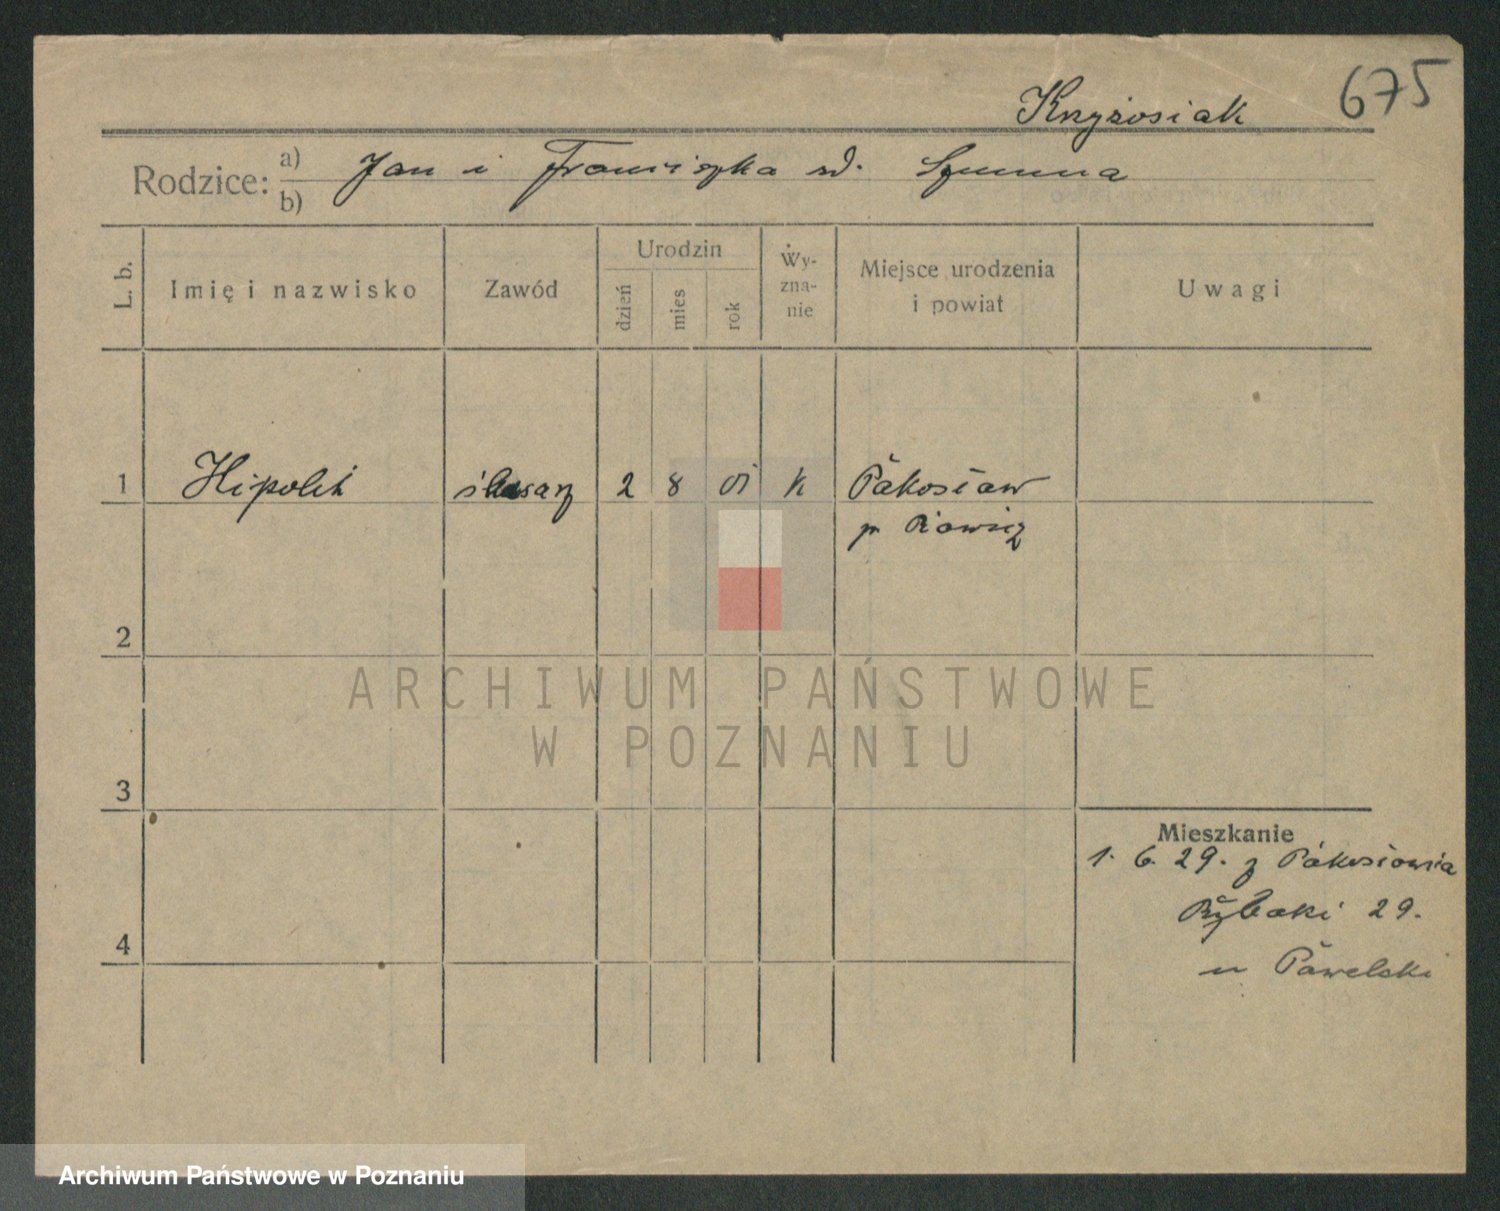 675
Krzyżosiak
Rodzice: a) b) Jan i Franciszka zd.
L. b.
Imię i nazwisko
Zawód
Urodzin
dzień
mies
rok
Wy-
zna-
nie
Miejsce urodzenia
i powiat
Uwagi
1 Hipolit ślusarz 2 8 01 k Pakosław
p Rawicz
2
ARCHIWUM PAŃSTWOWE
W POZNANIU
3
Mieszkanie
1. 6. 29. z Pakosławia
Rybaki 29.
4
u Pawelski
Archiwum Państwowe w Poznaniu